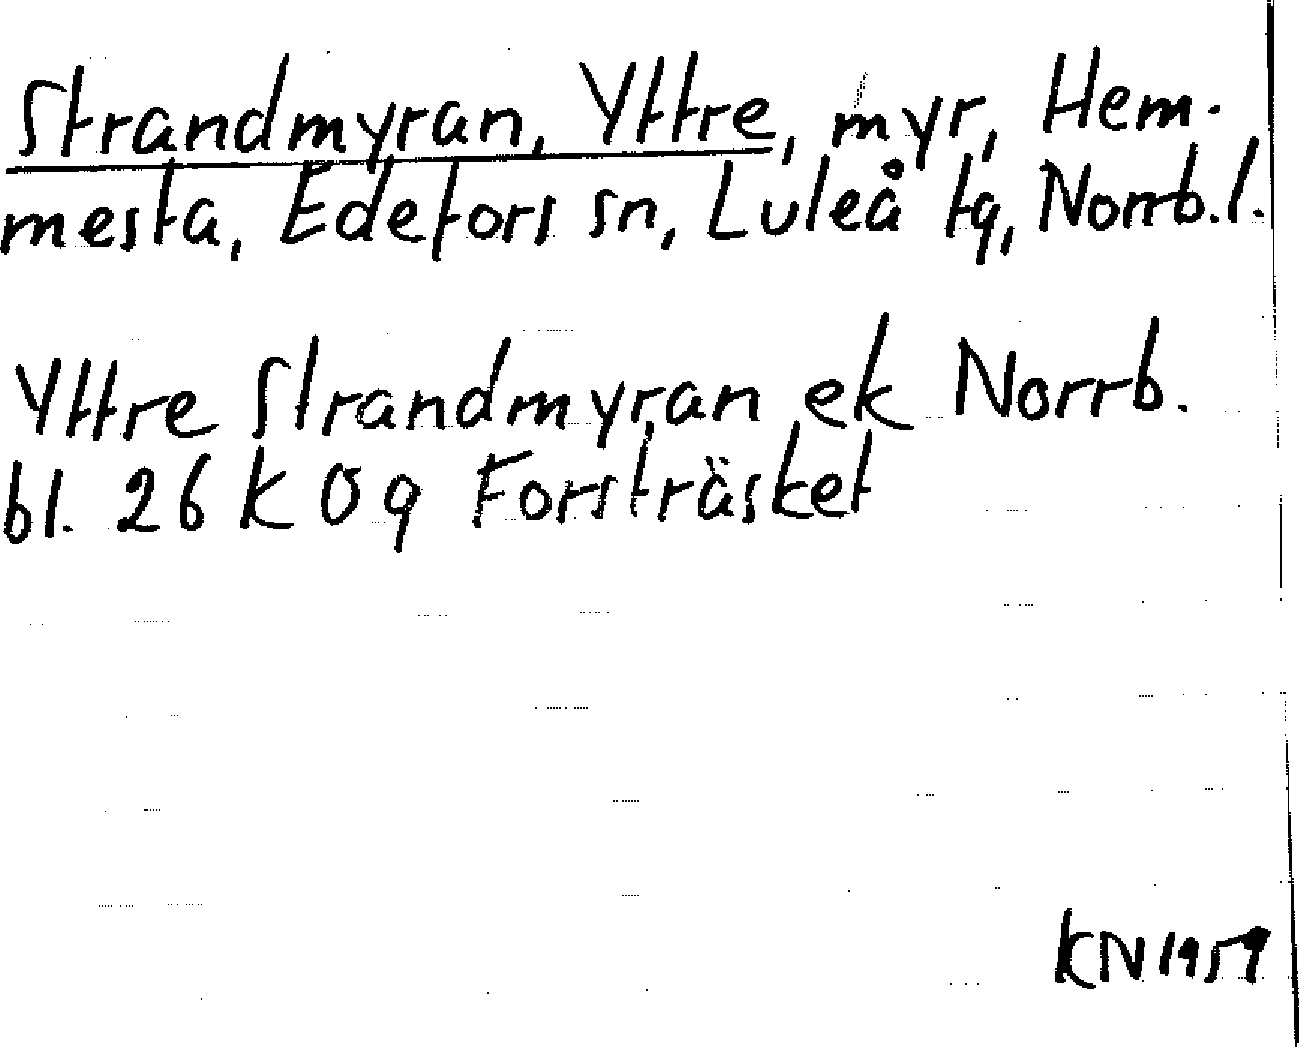 Strandmyran, Yttre, myr, Hem-
mesta, Edefors sn, Luleå tg, Norrb. l.
Yttre Strandmyran ek Norrb.
bl. 26 K Ö g Forsträsket
KN 1959